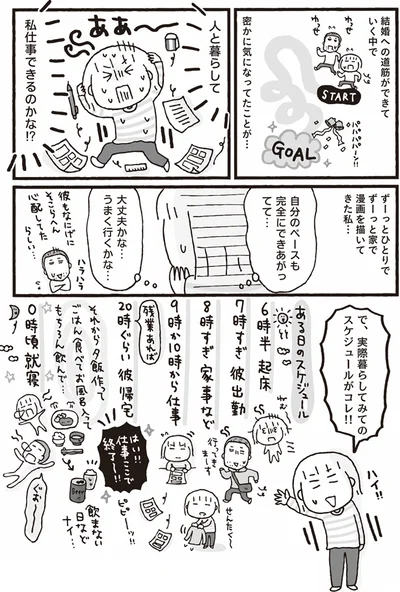 結婚への道筋ができて
いく中で
わっせ
わっせ
START
パンパカパーン!!
GOAL
密かに気になってたことが…
ああ〜
人と暮らして
私仕事できるのかな!?
ずーっとひとりで
ずーっと家で
漫画を描いて
きた私…
自分のペースも
完全にできあがっ
てて…
大丈夫かな…
うまく行くかな…
彼もなにげに
そこらへん
心配してた
らしい…
ハラハラ
で、実際暮らしてみての
スケジュールがコレ!!
ハイ!!
ある日のスケジュール
6時半 起床
7時すぎ 彼出勤
行ってき
まーす
8時すぎ 家事など
せんたく〜
9時か10時から仕事
残業あれば
20時ぐらい 彼帰宅
はい!!
仕事ここで
終了〜!!
ピピーッ!!
それから夕飯作って
ごはん食べてお風呂入って
もちろん飲んで…
Beer
飲まない
日など
ナイ…
0時頃 就寝
ぐお〜